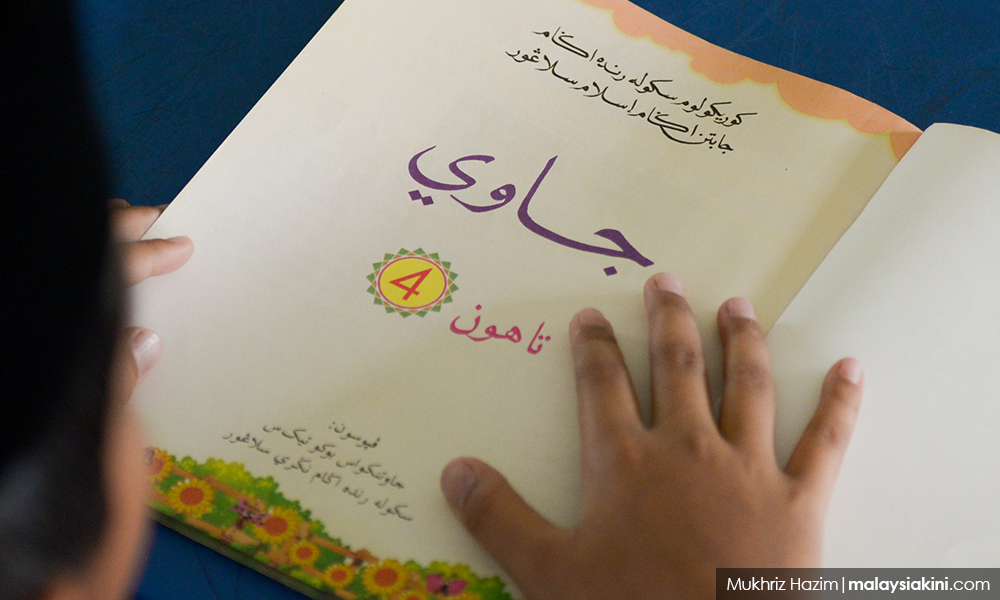 كوريكولوم سكوله رنده اݢام
جابتن اݢام اسلام سلاڠور
جاوي
تاهون 4
ڤڽوسون:
جاوتنكواس بوكو تيک س
سكوله رنده اݢام نݢري سلاڠور
Mukhriz Hazim | malaysiakini.com